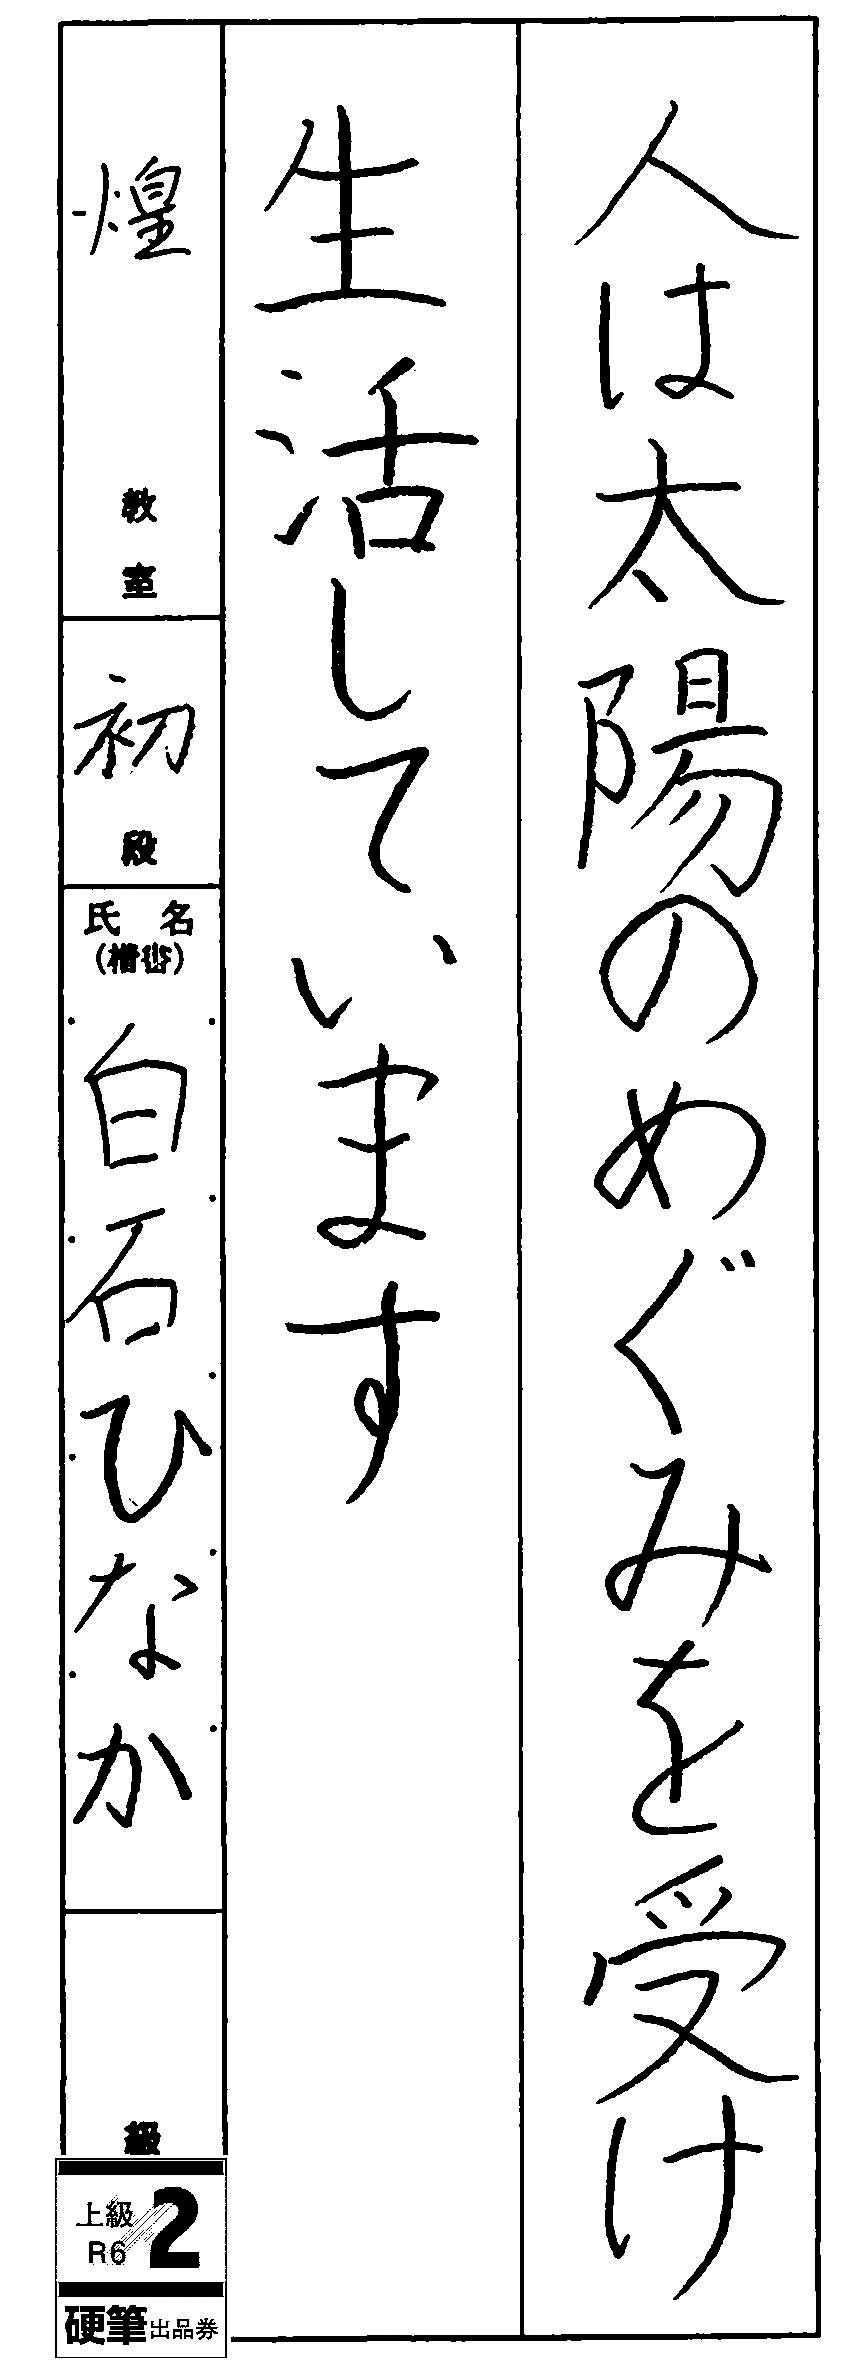 人は太陽のめぐみを受け
生活しています
煌 教室
初 段
氏名
(楷書)
白石ひなか
級
上級
R6
2
硬筆出品券